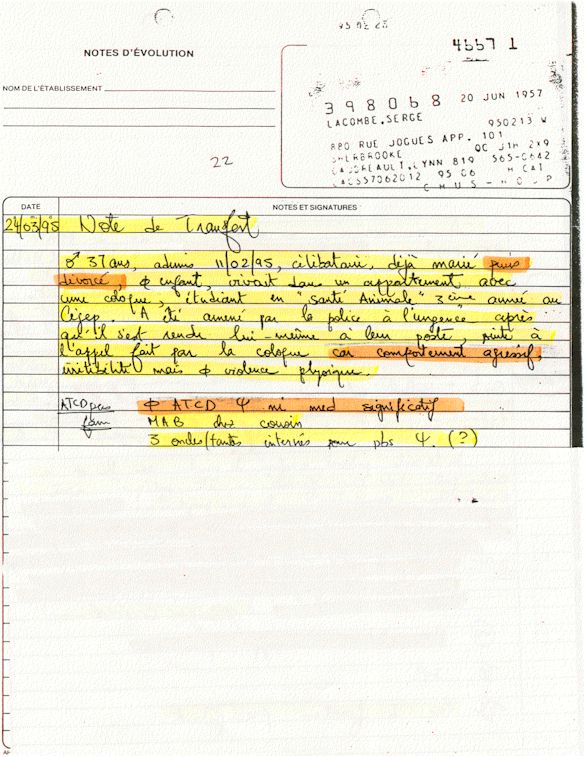 46671
NOTES D'ÉVOLUTION
398068 20 JUN 1957
NOM DE L'ÉTABLISSEMENT
LACOMBE, SERGE
950213 W
880 RUE JOGUES APP. 101
SHERBROOKE QC J1H 2X9
LYNN 819 565-0642
22
CHUS - HOJP
DATE NOTES ET SIGNATURES
24/03/95 Note de Transfert
♂ 37 ans, admis 11/02/95, célibataire, déjà marié puis
divorcé, φ enfant, vivait dans un appartement avec
une cologue, étudiant en "santé Animale" 3ième année au
Cégep. A été amené par la police à l'urgence après
qu'il s'est rendu lui-même à leur poste, suite à
l'appel fait par la cologue car comportement agressif,
irritabilité mais φ violence physique.
ATCD pers φ ATCD Ψ ni med significatif
fam MAB chez cousin
3 oncles/tantes internés pour pbs Ψ. (?)